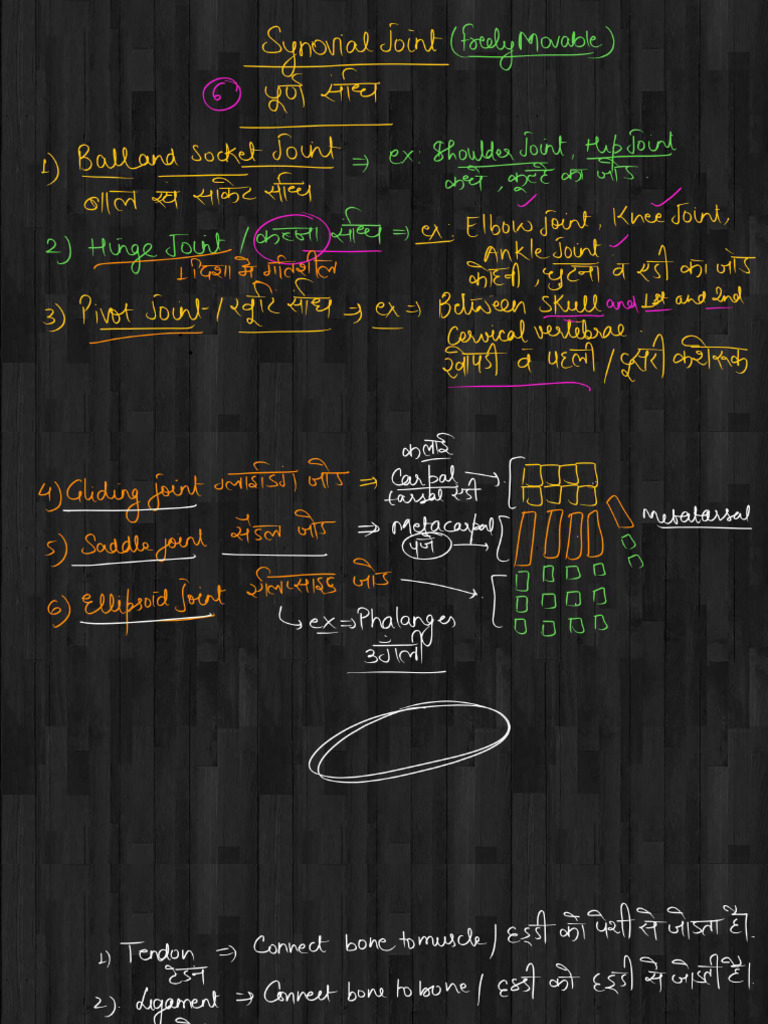 Synovial Joint (freely Movable)
6 पूर्ण संधि
1) Ball and Socket Joint ⇒ ex: Shoulder Joint, Hip Joint
बाल एव साकेट संधि कंधे, कूल्हे का जोड.
2) Hinge Joint / कब्जा संधि ⇒ ex: Elbow Joint, Knee Joint,
Ankle Joint
1 दिशा मे गतिशील कोहनी, घुटना व एडी का जोड
3) Pivot Joint / खूंटि संधि ⇒ ex ⇒ Between Skull and 1st and 2nd
Cervical vertebrae.
खोपडी व पहली / दूसरी कशेरूक
कलाई
4) Gliding joint ग्लाईडिंग जोड ⇒ Carpal
tarsal एडी
5) Saddle joint सैडल जोड ⇒ Metacarpal Metatarsal
पंजे
6) Ellipsoid Joint जोड
ex ⇒ Phalanges
उँगली
1) Tendon ⇒ Connect bone to muscle / हड्डी को पेशी से जोडता है।
टेंडन
2). Ligament ⇒ Connect bone to bone / हड्डी को हड्डी से जोडती है।